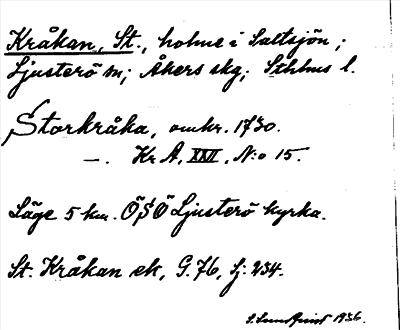 Kråkan, St., holme i Saltsjön;
Ljusterö sn; Åkers skg; Sthlms l.
Storkråka, omkr. 1730.
—. Kr A, XXII, N:o 15.
Läge 5 km. ÖSÖ Ljusterö kyrka.
St. Kråkan ek, G. 76, Lj. 234.
S. Lundquist 1936.